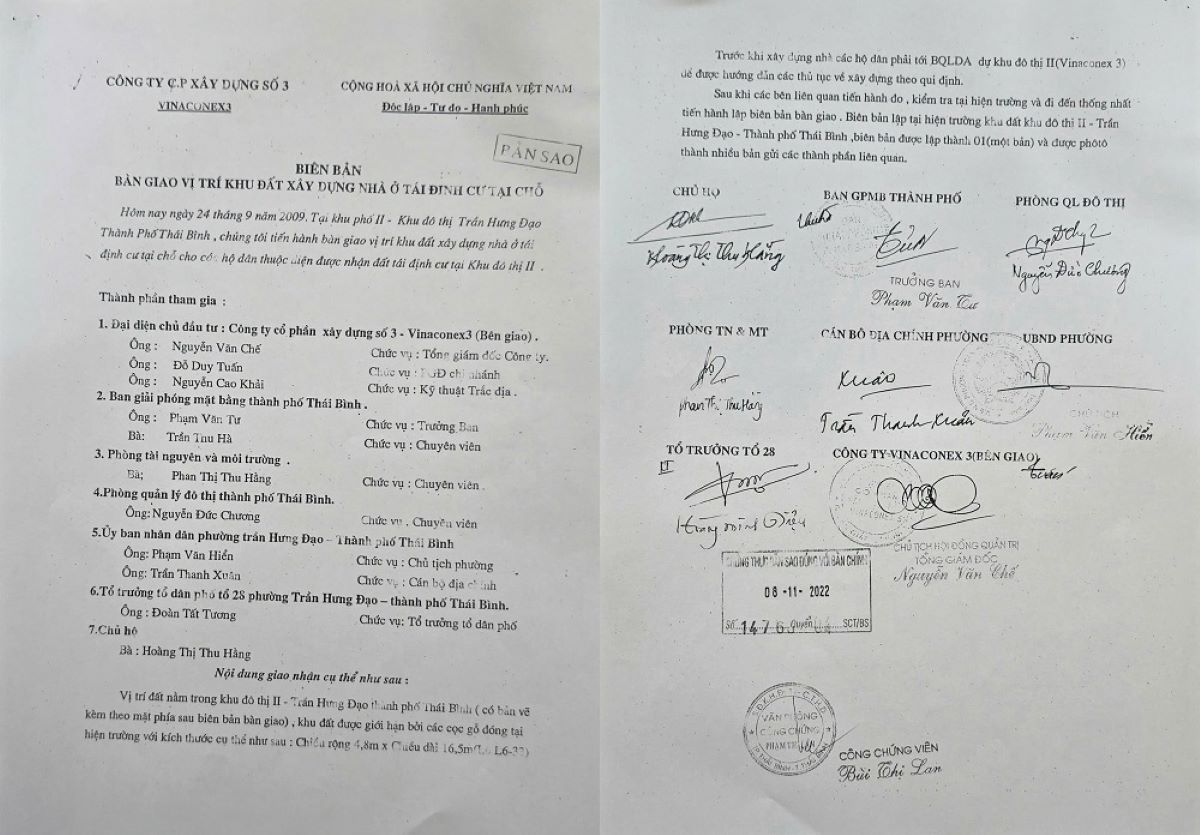 CÔNG TY C.P XÂY DỰNG SỐ 3
VINACONEX3
CỘNG HOÀ XÃ HỘI CHỦ NGHĨA VIỆT NAM
Độc lập - Tự do - Hạnh phúc
BẢN SAO
BIÊN BẢN
BÀN GIAO VỊ TRÍ KHU ĐẤT XÂY DỰNG NHÀ Ở TÁI ĐỊNH CƯ TẠI CHỖ
Hôm nay ngày 24 tháng 9 năm 2009. Tại khu phố II - Khu đô thị Trần Hưng Đạo
Thành Phố Thái Bình , chúng tôi tiến hành bàn giao vị trí khu đất xây dựng nhà ở tái
định cư tại chỗ cho các hộ dân thuộc diện được nhận đất tái định cư tại Khu đô thị II .
Thành phần tham gia :
1. Đại diện chủ đầu tư : Công ty cổ phần xây dựng số 3 - Vinaconex3 (Bên giao) .
Ông : Nguyễn Văn Chế Chức vụ : Tổng giám đốc Công ty.
Ông : Đỗ Duy Tuấn Chức vụ : PGĐ chi nhánh
Ông : Nguyễn Cao Khải Chức vụ : Kỹ thuật Trắc địa .
2. Ban giải phóng mặt bằng thành phố Thái Bình .
Ông : Phạm Văn Tư Chức vụ : Trưởng Ban
Bà: Trần Thu Hà Chức vụ : Chuyên viên
3. Phòng tài nguyên và môi trường .
Bà; Phan Thị Thu Hằng Chức vụ : Chuyên viên .
4.Phòng quản lý đô thị thành phố Thái Bình.
Ông: Nguyễn Đức Chương Chức vụ . Chuyên viên
5.Ủy ban nhân dân phường trần Hưng Đạo – Thành phố Thái Bình
Ông: Phạm Văn Hiển Chức vụ : Chủ tịch phường
Ông: Trần Thanh Xuân Chức vụ : Cán bộ địa chính
6.Tổ trưởng tổ dân phố tổ 28 phường Trần Hưng Đạo – thành phố Thái Bình.
Ông : Đoàn Tất Tương Chức vụ: Tổ trưởng tổ dân phố
7.Chủ hộ
Bà : Hoàng Thị Thu Hằng
Nội dung giao nhận cụ thể như sau :
Vị trí đất nằm trong khu đô thị II - Trần Hưng Đạo thành phố Thái Bình ( có bản vẽ
kèm theo mặt phía sau biên bản bàn giao) , khu đất được giới hạn bởi các cọc gỗ đóng tại
hiện trường với kích thước cụ thể như sau : Chiều rộng 4,8m x Chiều dài 16,5m
Trước khi xây dựng nhà các hộ dân phải tới BQLDA dự khu đô thị II(Vinaconex 3)
để được hướng dẫn các thủ tục về xây dựng theo qui định.
Sau khi các bên liên quan tiến hành đo , kiểm tra tại hiện trường và đi đến thống nhất
tiến hành lập biên bản bàn giao . Biên bản lập tại hiện trường khu đất khu đô thị II - Trần
Hưng Đạo - Thành phố Thái Bình ,biên bản được lập thành 01(một bản) và được phôtô
thành nhiều bản gửi các thành phần liên quan.
CHỦ HỘ
BAN GPMB THÀNH PHỐ
PHÒNG QL ĐÔ THỊ
Hoàng Thị Thu Hằng
TRƯỞNG BAN
Phạm Văn Tư
Nguyễn Đức Chương
PHÒNG TN & MT
CÁN BỘ ĐỊA CHÍNH PHƯỜNG
UBND PHƯỜNG
Phan Thị Thu Hằng
Xuân
Trần Thanh Xuân
CHỦ TỊCH
Phạm Văn Hiển
TỔ TRƯỞNG TỔ 28
CÔNG TY VINACONEX 3(BÊN GIAO)
CHỦ TỊCH HỘI ĐỒNG QUẢN TRỊ
TỔNG GIÁM ĐỐC
Nguyễn Văn Chế
CHỨNG THỰC BẢN SAO ĐÚNG VỚI BẢN CHÍNH
08 -11- 2022
Số Quyển SCT/BS
VĂN PHÒNG
CÔNG CHỨNG
CÔNG CHỨNG VIÊN
Bùi Thị Lan